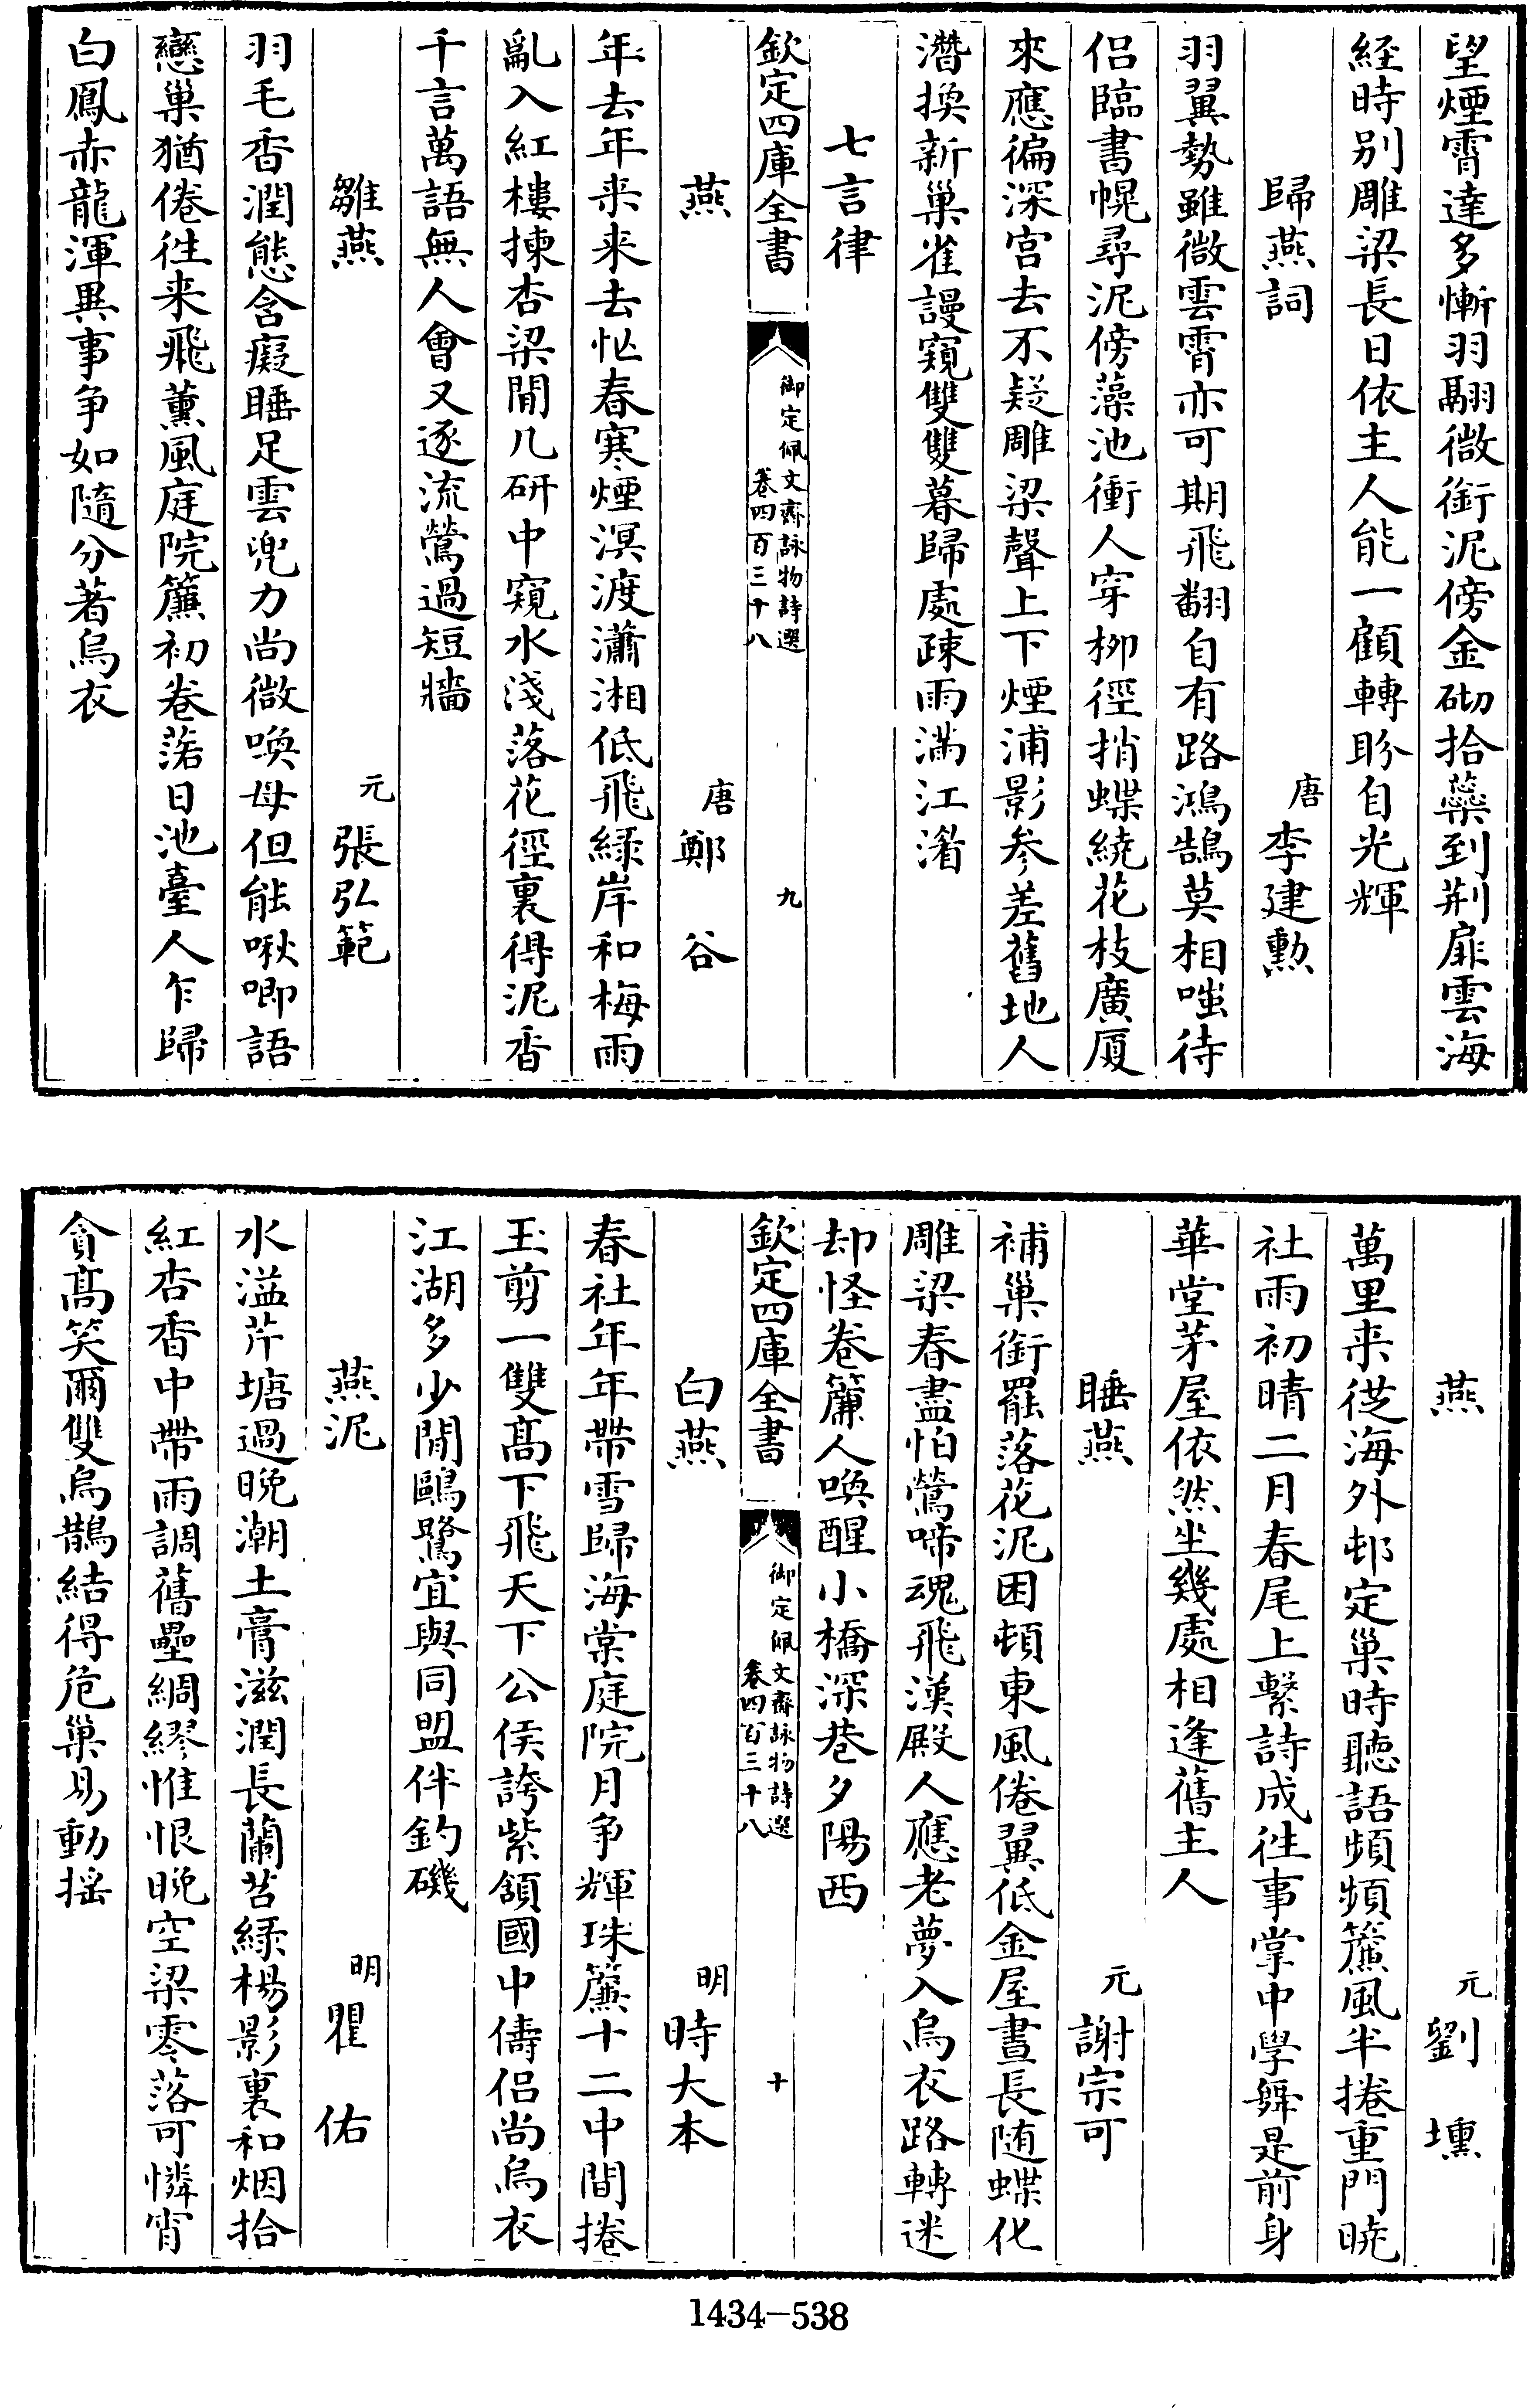 望煙霄達多慚羽翮微銜泥傍金砌拾蘂到荆扉雲海
経時别雕梁長日依主人能一顧轉盻自光輝
歸燕詞　唐李建勲
羽翼勢雖微雲霄亦可期飛翻自有路鴻鵠莫相嗤待
侣臨書幌尋泥傍藻池衝人穿栁徑捎蝶繞花枝廣厦
來應徧深宫去不疑雕梁聲上下煙浦影參差舊地人
潛換新巢雀謾窺雙雙暮歸處疎雨滿江湄
七言律
欽定四庫全書　御定佩文齋詠物詩選卷四百三十八　九
燕　唐鄭谷
年去年来来去忙春寒煙溟渡瀟湘低飛緑岸和梅雨
亂入紅樓揀杏梁閒几研中窺水淺落花徑裏得泥香
千言萬語無人會又逐流鶯過短牆
雛燕　元張弘範
羽毛香潤態含癡睡足雲兜力尚微喚母但能啾唧語
戀巢猶倦徃来飛薰風庭院簾初卷落日池臺人乍歸
白鳳赤龍渾異事争如隨分著烏衣
燕　元劉壎
萬里来從海外邨定巢時聽語頻頻簾風半捲重門暁
社雨初晴二月春尾上繫詩成徃事掌中學舞是前身
華堂茅屋依然坐幾處相逢舊主人
睡燕　元謝宗可
補巢銜罷落花泥困頓東風倦翼低金屋晝長随蝶化
雕梁春盡怕鶯啼魂飛漢殿人應老夢入烏衣路轉迷
却怪卷簾人喚醒小橋深巷夕陽西
欽定四庫全書　御定佩文齋詠物詩選卷四百三十八　十
白燕　明時大本
春社年年帶雪歸海棠庭院月争輝珠簾十二中間捲
玉剪一雙髙下飛天下公侯誇紫頷國中儔侣尚烏衣
江湖多少閒鷗鷺宜與同盟伴釣磯
燕泥　明瞿佑
水溢芹塘過晚潮土膏滋潤長蘭苕緑楊影裏和烟拾
紅杏香中帶雨調舊壘綢繆惟恨晚空梁零落可憐宵
貪髙笑爾雙烏鵲結得危巢易動揺
1434-538